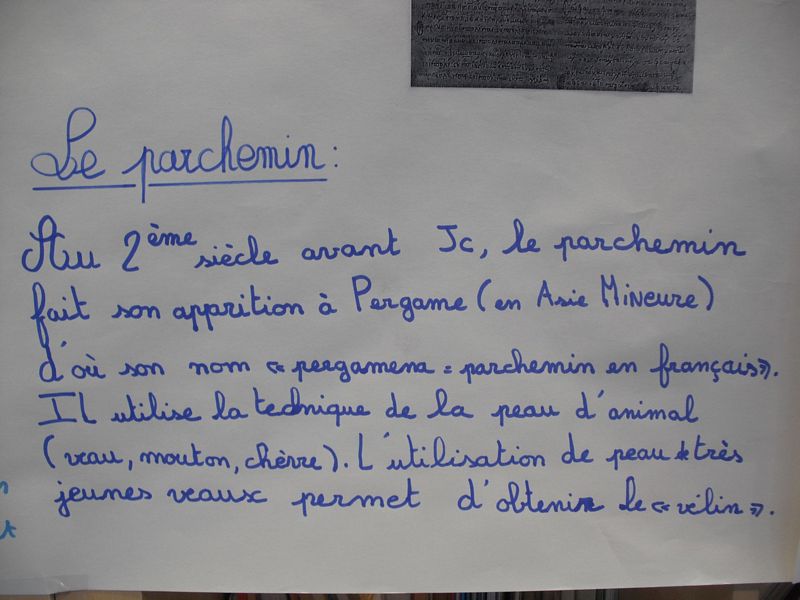 Le parchemin :
Au 2ème siècle avant Jc, le parchemin
fait son apprition à Pergame (en Asie MiNeure)
d'où son nom « pergamena = parchemin en français ».
Il utilise la technique de la peau d'animal
(veau, mouton, chèvre). L'utilisation de peau de très
jeunes veaux permet d'obtenir le « vélin ».